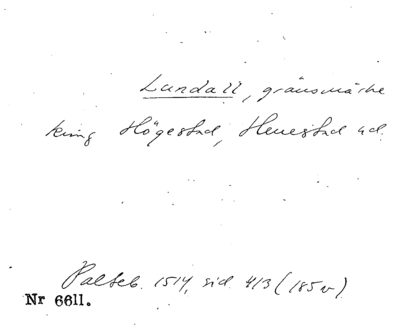 Lundall, gränsmärke
kring Högestad, Henestad ad.
Palteb. 1514, sid. 413 (185 v).
Nr 6611.